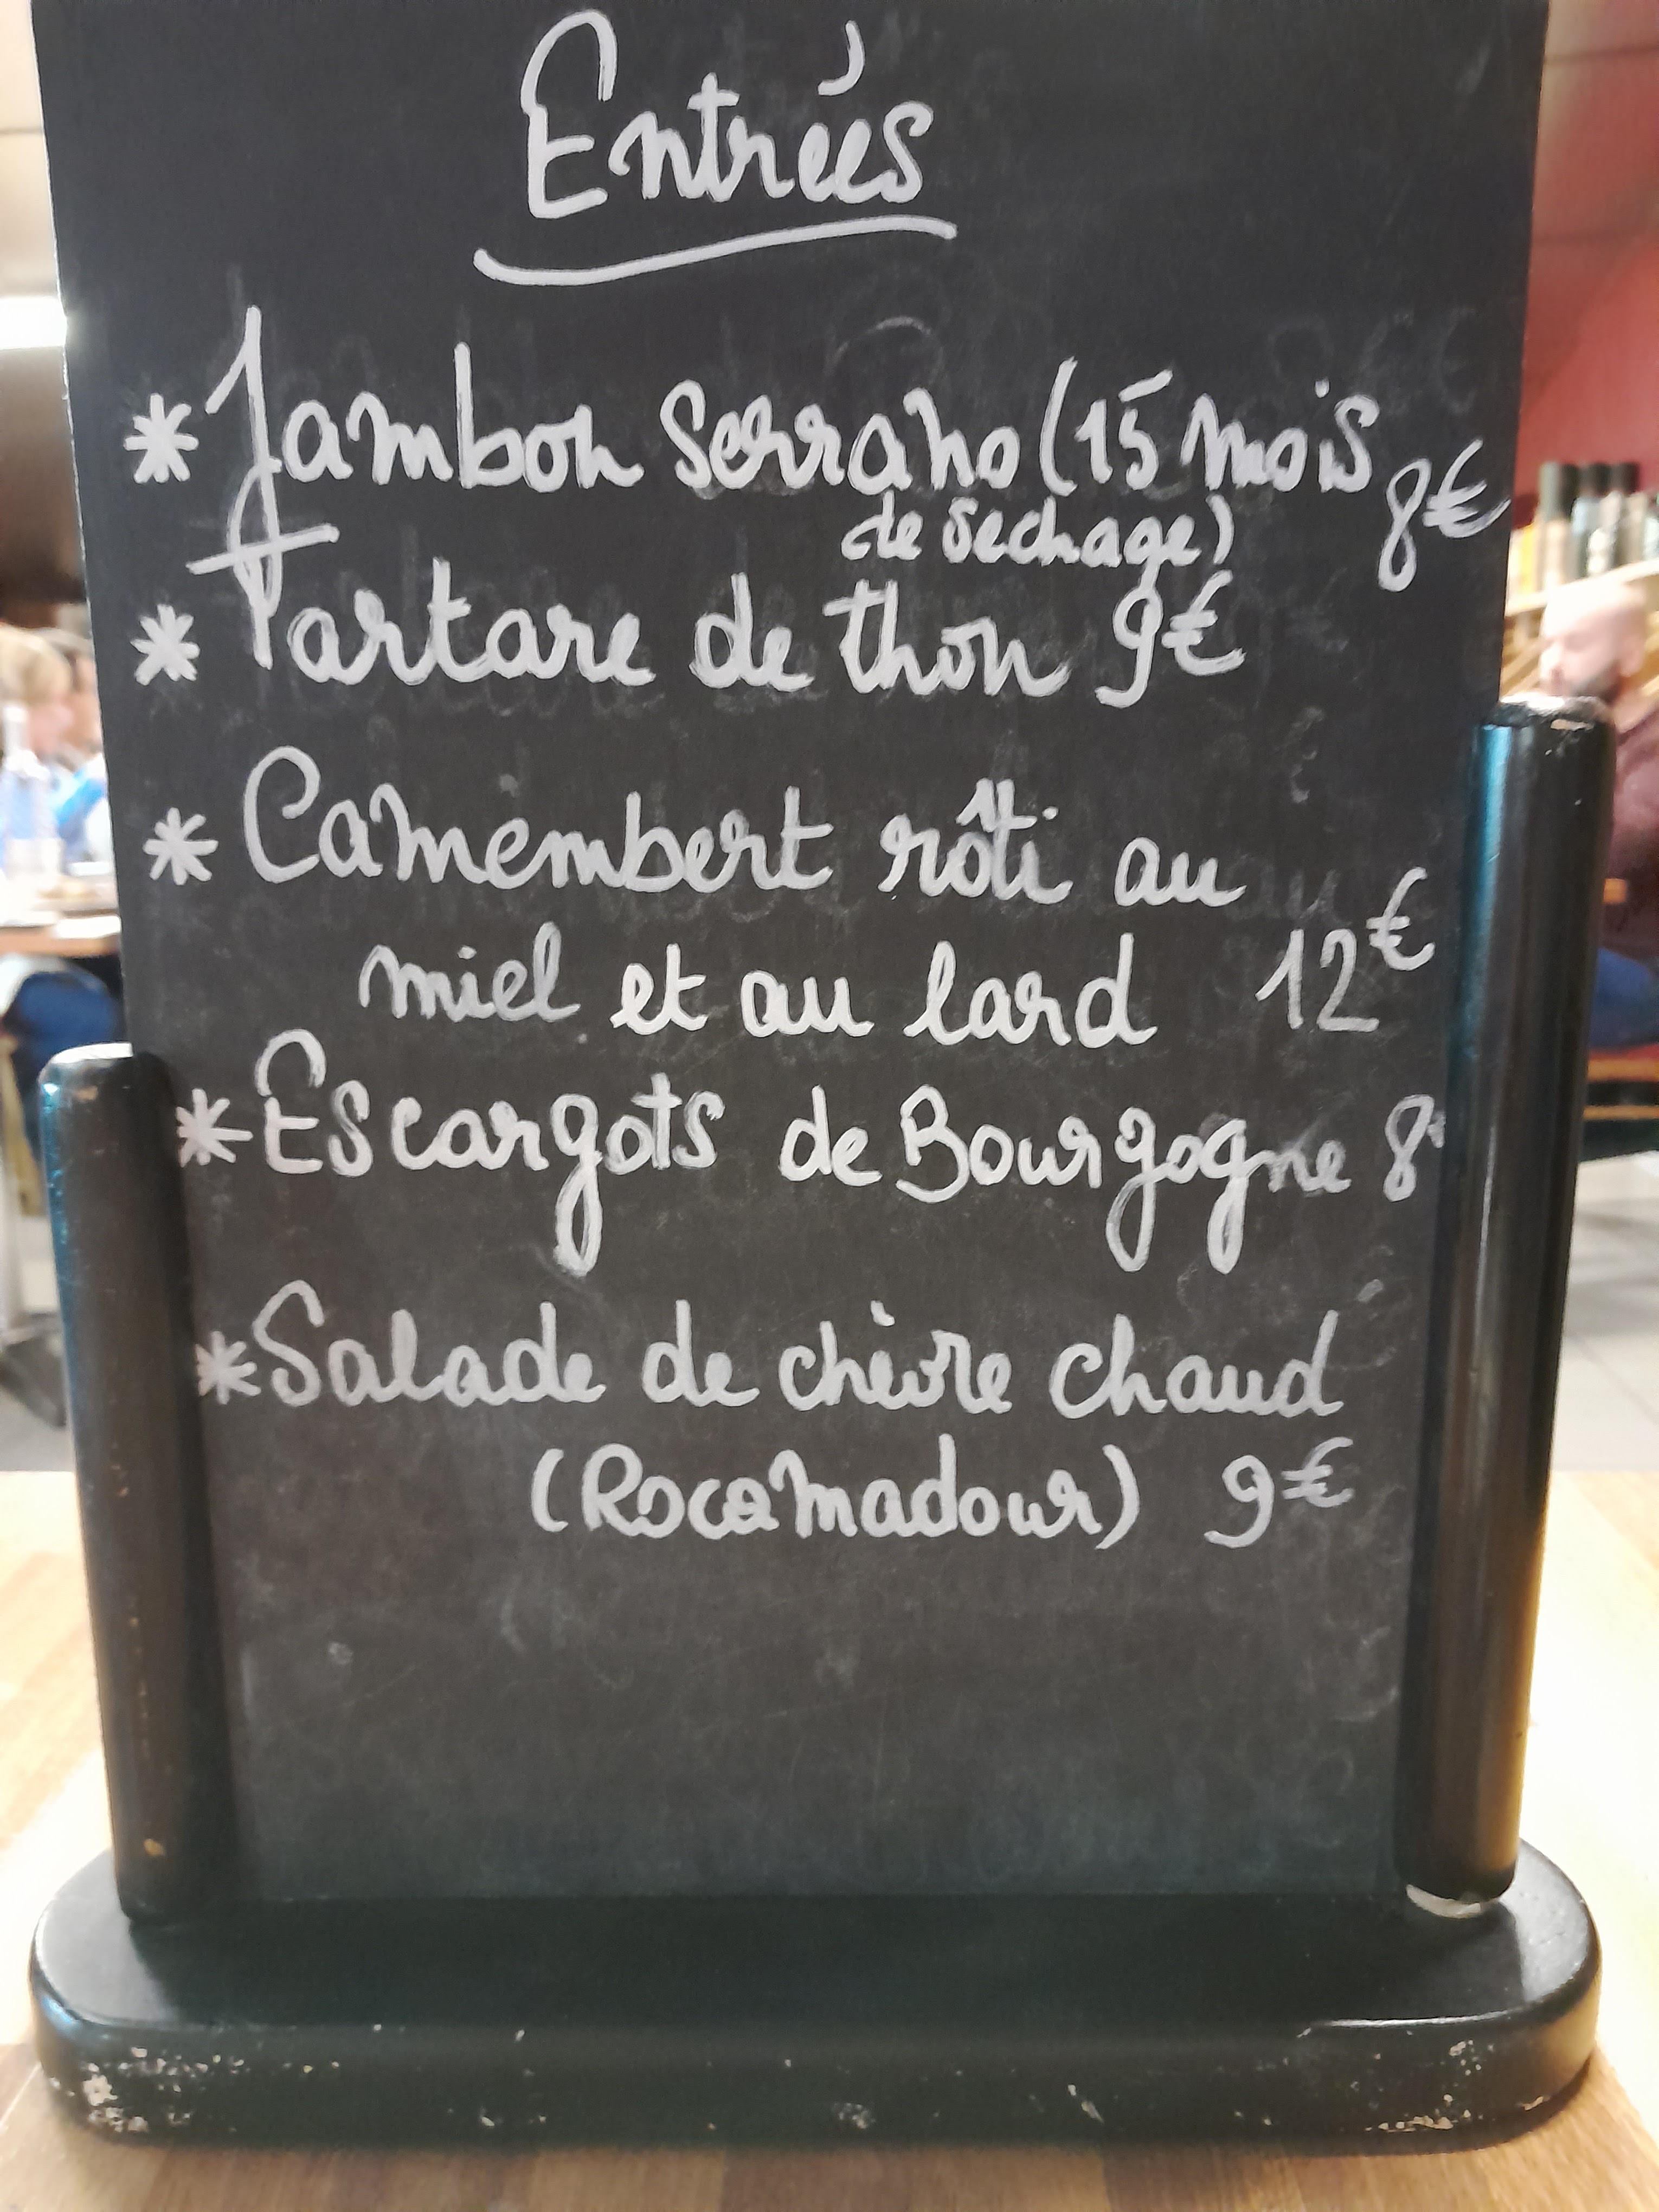 Entrées
* Jambon Serrano (15 mois
de sechage) 8€
* Tartare de thon 9€
* Camembert rôti au
miel et au lard 12€
* Escargots de Bourgogne 8
* Salade de chèvre chaud
(Rocamadour) 9€